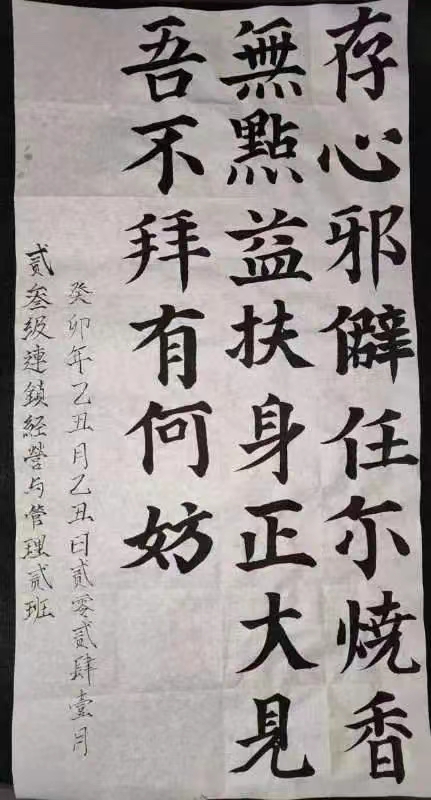 存心邪僻任尔燒香
無點益扶身正大見
吾不拜有何妨
癸卯年乙丑月乙丑日貳零貳肆壹月
貳叁级連鎖经營与管理貳班